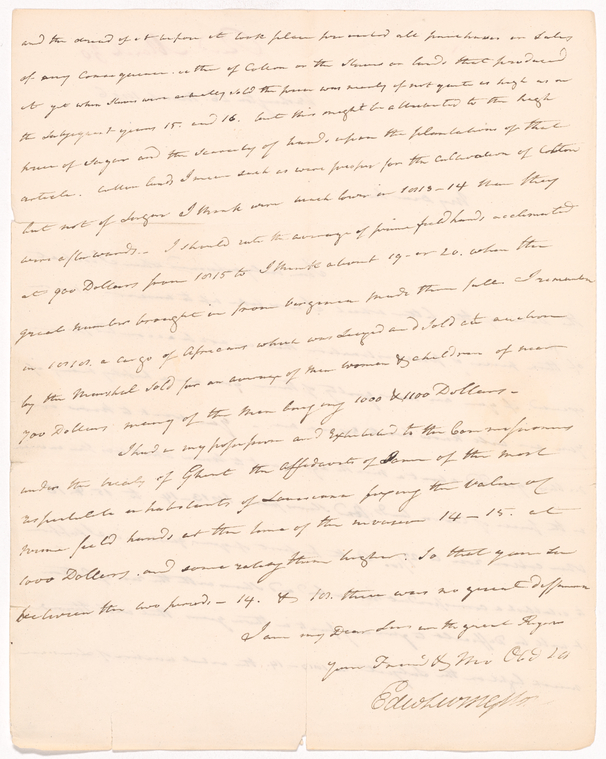 and the dread of it before it took place prevented all purchases or Sales
of any Consequence either of Cotton or the Slaves or lands that produced
it yet when Slaves were actually sold the price was nearly if not quite as high as in
the Subsequent years 15. and 16. but this might be attributed to the high
price of Sugar and the scarcity of hands upon the plantations of that
article. Cotton lands I mean such as were proper for the cultivation of Cotton
but not of Sugar I think were much lower in 1813-14 than they
were afterwards. I should rate the average of prime field hands acclimated
at 900 Dollars from 1815 to I think about 19 or 20. when the
great number brought in from Virginia made them fall. I remember
in 1818. a cargo of Africans which was Seized and Sold at auction
by the Marshal sold for an average of Men Women & children of near
700 Dollars many of the Men bringing 1000 & 1100 Dollars -
I had in my possession and Exhibited to the Commissioners
under the treaty of Ghent the Affidavits of Some of the most
respectable inhabitants of Louisiana fixing the Value of
prime field hands at the time of the invasion 14-15. at
1000 Dollars. and some rating them higher. So that you See
between the two periods - 14. & 18. there was no great difference
I am my Dear Sir with great Regard
your Friend & Mo Obd
Edw Livingston